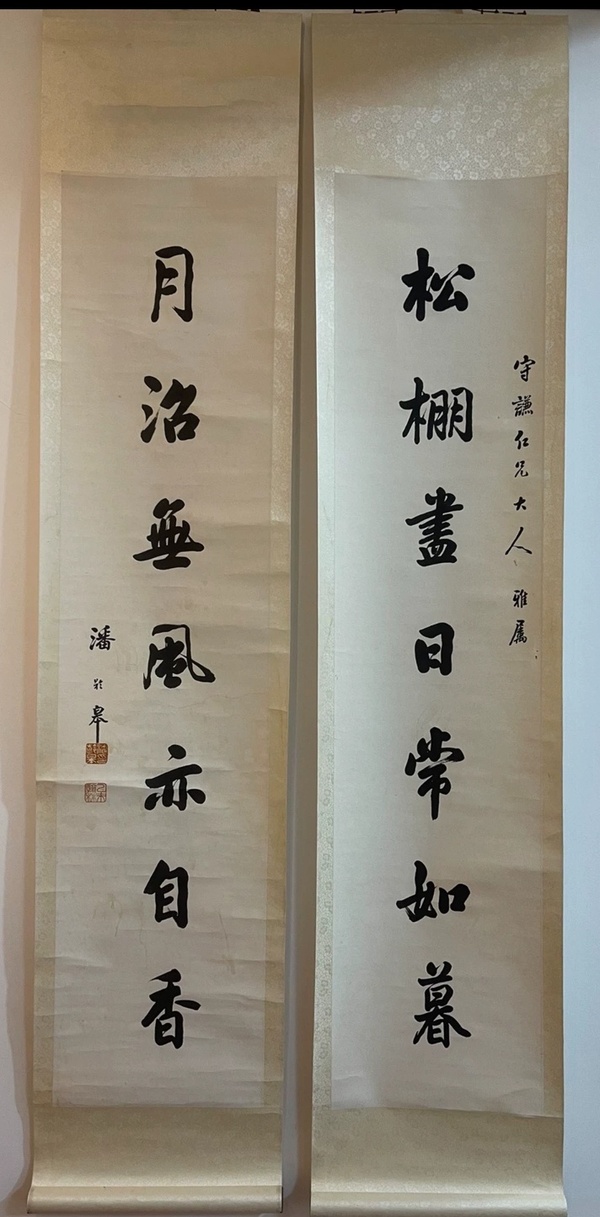 守謙仁兄大人雅属
松棚盡日常如暮
月沼無風亦自香
潘齡皋